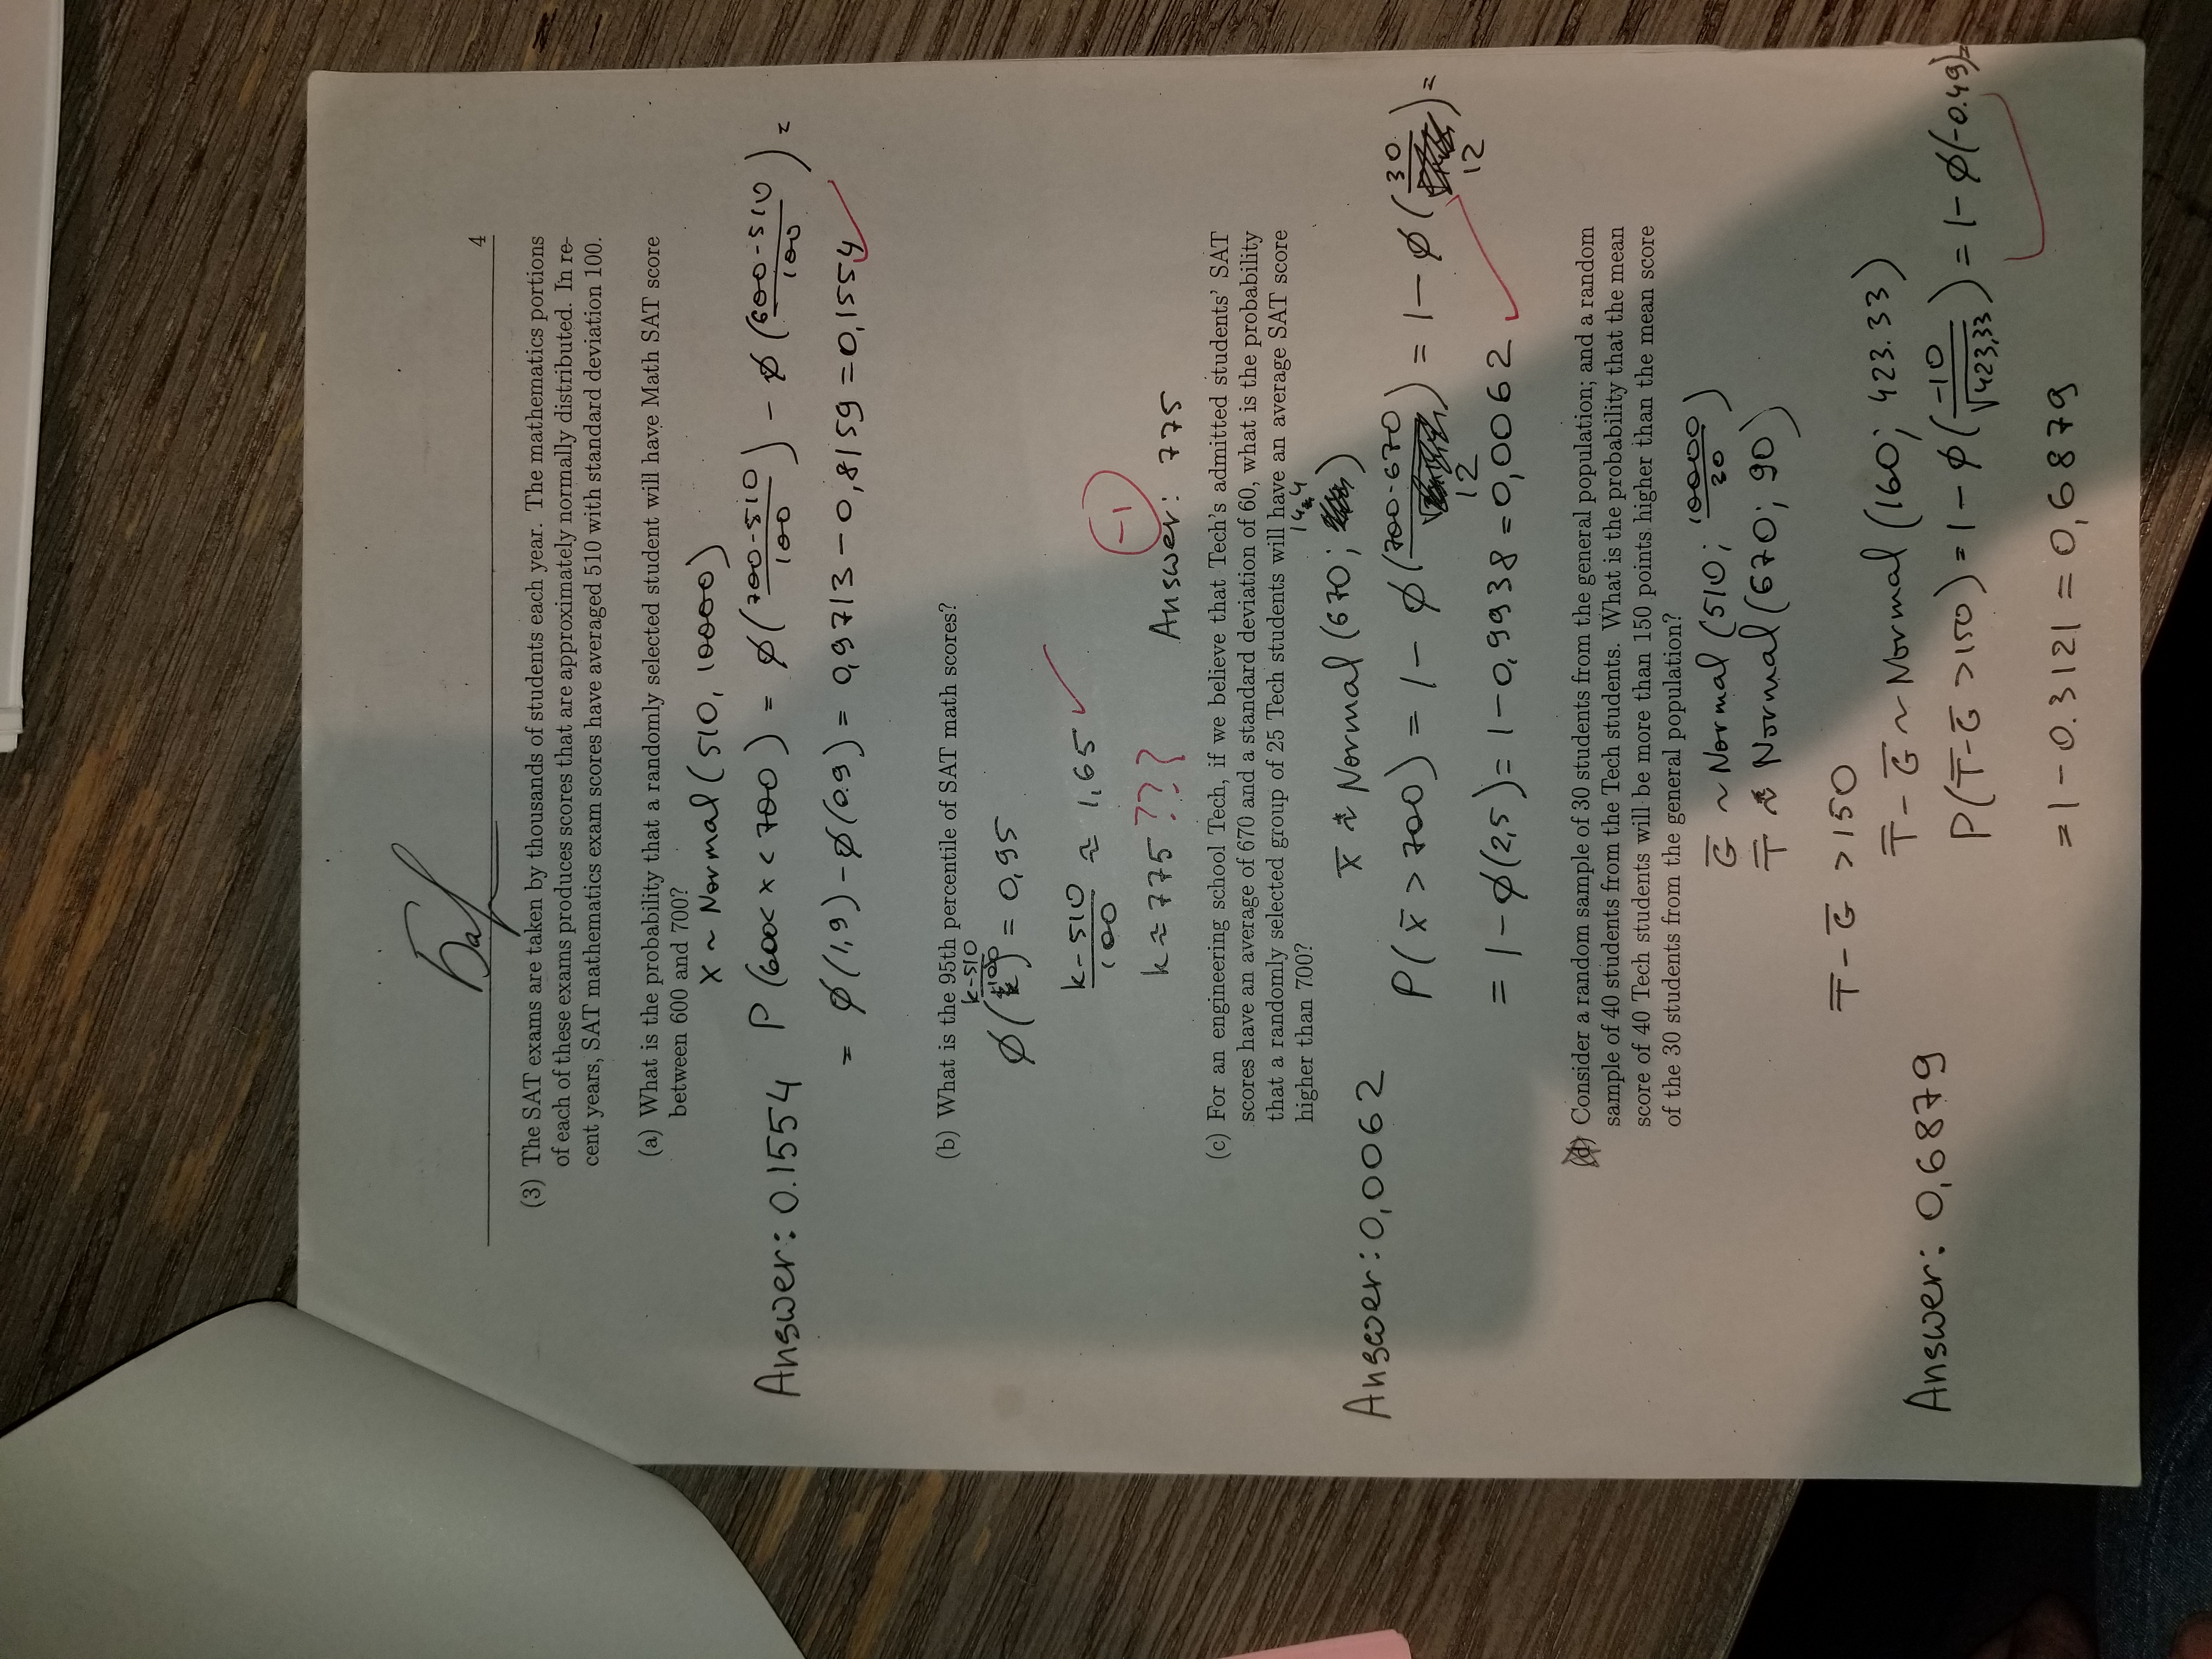 Баf
4
(3) The SAT exams are taken by thousands of students each year. The mathematics portions
of each of these exams produces scores that are approximately normally distributed. In re-
cent years, SAT mathematics exam scores have averaged 510 with standard deviation 100.
(a) What is the probability that a randomly selected student will have Math SAT score
between 600 and 700?
X ~ Normal (510, 10000)
Answer: 0.1554
P (600< x < 700) = φ(700-510/100) - φ(600-510/100) =
= φ(1,9) - φ(0.9) = 0,9713 - 0,8159 = 0,1554
(b) What is the 95th percentile of SAT math scores?
φ(k-510/100) = 0,95
k-510/100 ≈ 1,65
-1
k ≈ 775 ???
Answer: 775
(c) For an engineering school Tech, if we believe that Tech's admitted students' SAT
scores have an average of 670 and a standard deviation of 60, what is the probability
that a randomly selected group of 25 Tech students will have an average SAT score
higher than 700?
X̄ ~ Normal (670; 144)
Answer: 0,0062
P(x̄ > 700) = 1 - φ(700-670/12) = 1 - φ(30/12) =
= 1 - φ(2,5) = 1 - 0,9938 = 0,0062
(d) Consider a random sample of 30 students from the general population; and a random
sample of 40 students from the Tech students. What is the probability that the mean
score of 40 Tech students will be more than 150 points higher than the mean score
of the 30 students from the general population?
G̅ ~ Normal (510; 10000/30)
T̅ ~ Normal (670; 90)
T̅ - G̅ > 150
T̅ - G̅ ~ Normal (160; 423.33)
Answer: 0,6879
P(T̅-G̅ >150) = 1 - φ(-10/√423,33) = 1 - φ(-0.49) =
= 1 - 0.3121 = 0,6879